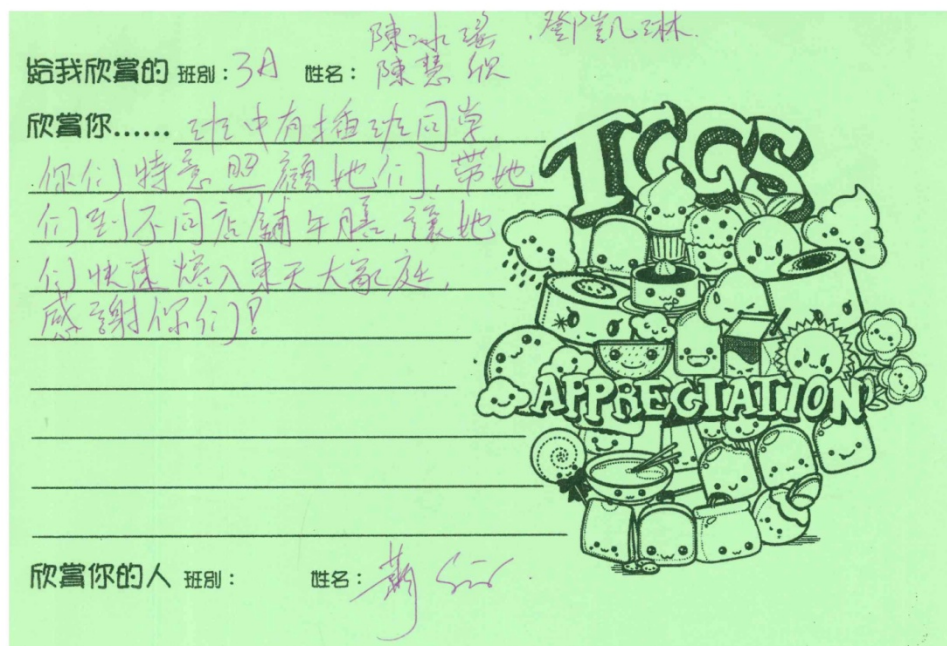 陳冰瑤．鄧凱琳．
給我欣賞的 班別：3A 姓名：陳慧欣
欣賞你...... 班中有插班同學，
你们特意照顧她们，带她
们到不同店舖午膳，讓她
们快速熔入東天大家庭，
感謝你们！
TCGS
APPRECIATION
欣賞你的人 班別： 姓名：蕭 Sir．